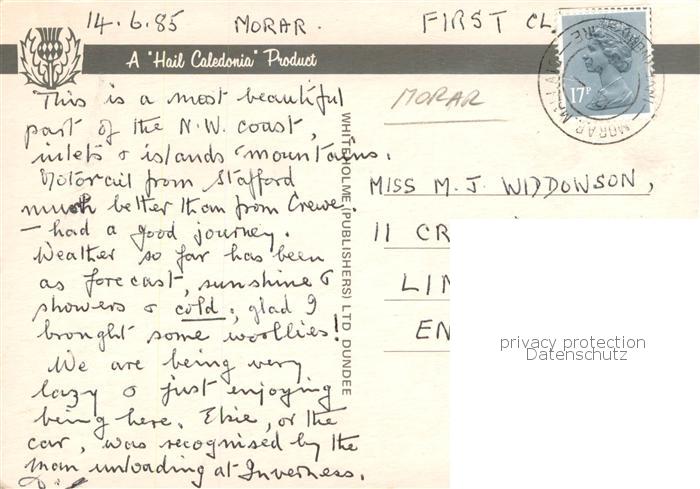 14.6.85 MORAR. FIRST CL.
A "Hail Caledonia" Product
17P
This is a most beautiful
part of the N.W. coast,
inlets & islands & mountains.
Motorail from Stafford
much better than from Crewe.
– had a good journey.
Weather so far has been
as forecast, sunshine &
showers & cold; glad I
brought some woollies!
We are being very
lazy & just enjoying
being here. Elsie, or the
car, was recognised by the
man unloading at Inverness.
WHITEHOLME (PUBLISHERS) LTD DUNDEE
MORAR
MORAR MALLAIG
MISS M. J. WIDDOWSON,
11 CR
LIN
EN
privacy protection
Datenschutz